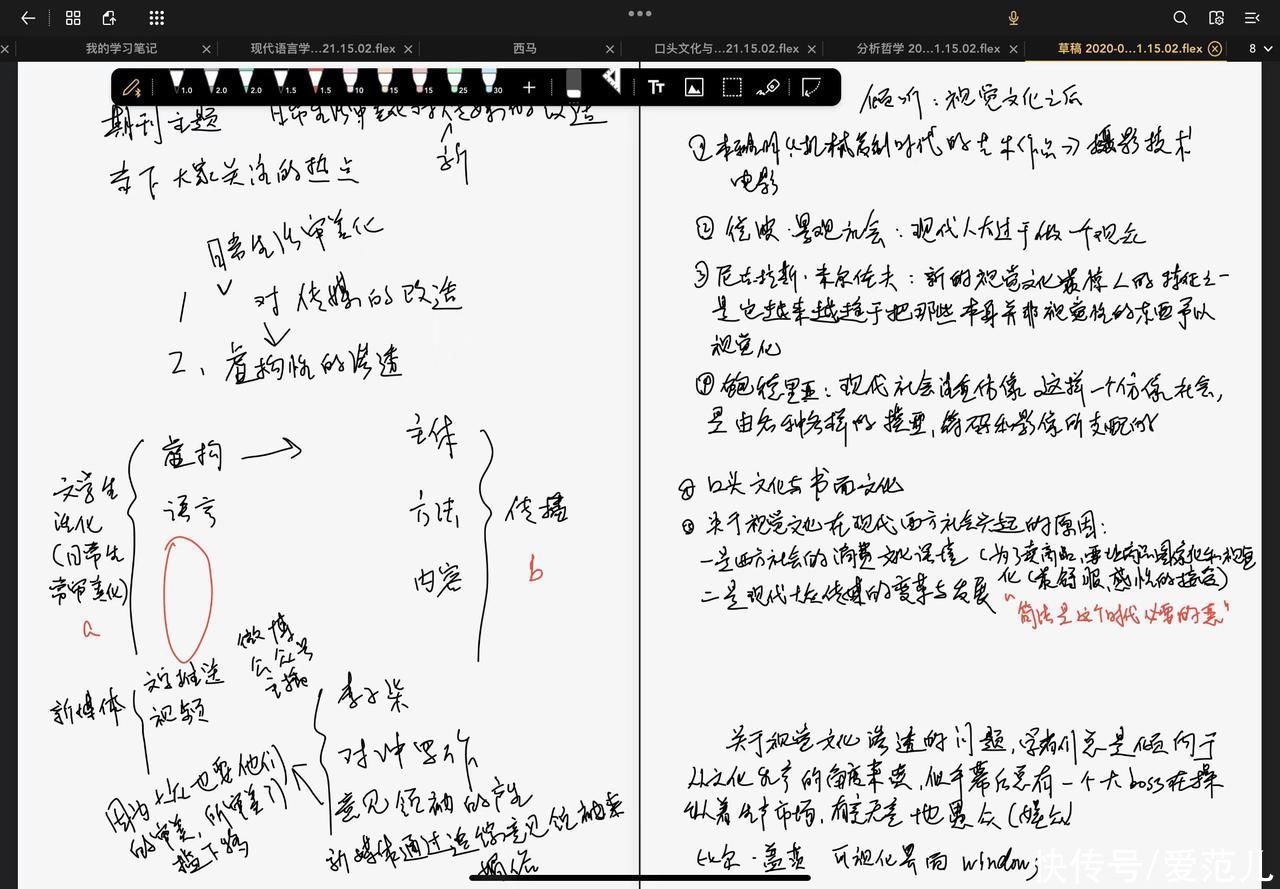 我的学习笔记
现代语言学...21.15.02.flex
西马
口头文化与...21.15.02.flex
分析哲学 20...1.15.02.flex
草稿 2020-0...1.15.02.flex
8
1.0 2.0 2.0 1.5 1.5 10 15 15 25 30
Tt
期刊主题
新
当下大家关注的热点
日常生活审美化
1 对传媒的改造
2、虚构性的渗透
虚构
语言
主体
方法
内容
传播
b
文学生
活化
(日常生
常审美化)
a
微博
公众号
主播
新媒体
文字推送
视频
李子柒
对冲
意见领袖的产生
新媒体通过
因为
也要他们
的审美,所
槛下降
倾听:视觉文化之后
① 本雅明《机械复制时代的艺术作品》摄影技术
电影
② 德波·景观社会:现代人太过于做一个观众
③ 尼古拉斯·米尔佐夫:新的视觉文化最惊人的特征之一
是它越来越趋于把那些本身并非视觉性的东西予以
视觉化
④ 鲍德里亚:现代社会注重仿像,这样一个仿像社会,
是由各种各样的模型,符码和影像所支配的
口头文化与书面文化
关于视觉文化在现代西方社会兴起的原因:
一是西方社会的消费文化语境(为了卖商品,要让商品图像化和视觉
化(最舒服,感性的接受)
二是现代大众传媒的变革与发展
"简洁是这个时代必要的恶"
关于视觉文化渗透的问题,学者们总是倾向于
从文化生产的角度来谈,但幕后总有一个大boss在操
纵着生产市场,有意无意地愚众(媚众)
比尔·盖茨 可视化界面 window;
快传号/爱范儿